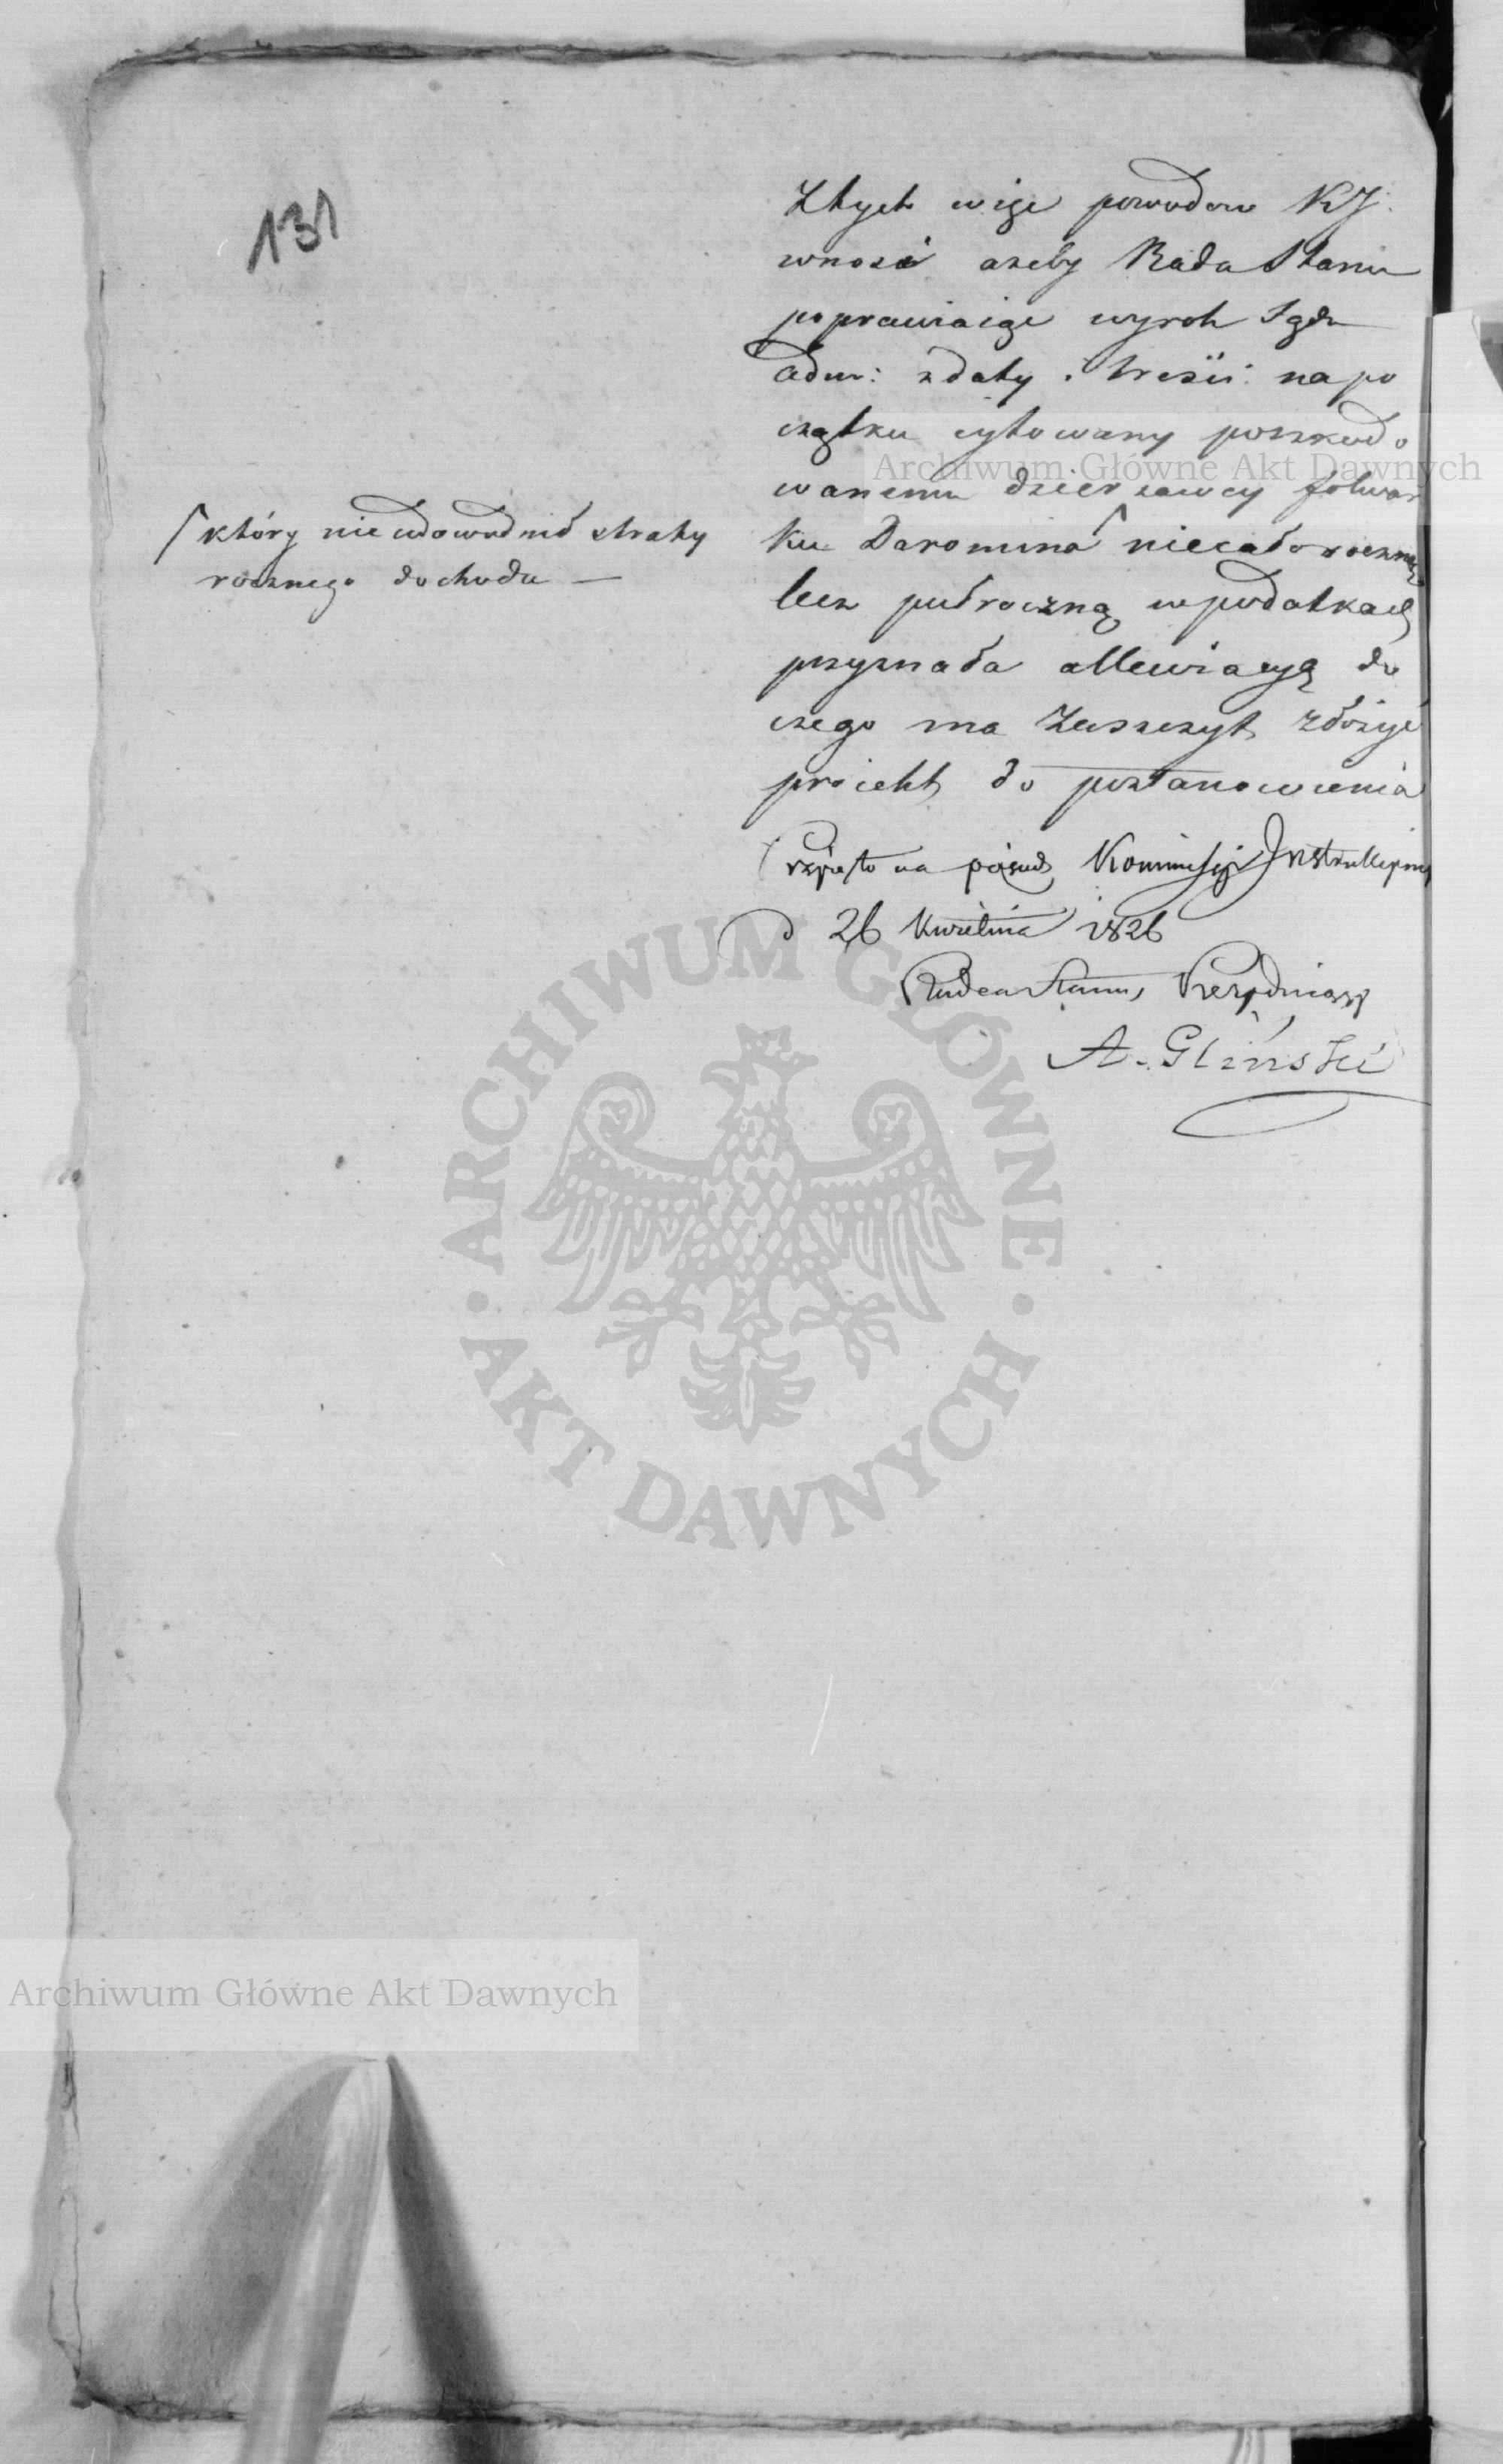 131
Z tych więc powodow KJ.
wnosi ażeby Rada Stanu
poprawiaiąc wyrok Sądu
Adm: z daty i treści na po
czątku cytowany poszkodo
wanemu dzierżawcy folwar
ku Daromina ⌈ niecałoroczną
lecz pułroczną w podatkach
przyznała allewiacyą do
czego ma zaszczyt złożyć
proiekt do postanowienia
⌈ który nie udowodnił straty
rocznego dochodu —
Przyięto na posied. Kommissyi Instrukcyiney
d 26 Kwietnia 1826
Radca Stanu Prezyduiący
A. Gliński
Archiwum Główne Akt Dawnych
ARCHIWUM GŁÓWNE
AKT DAWNYCH
Archiwum Główne Akt Dawnych